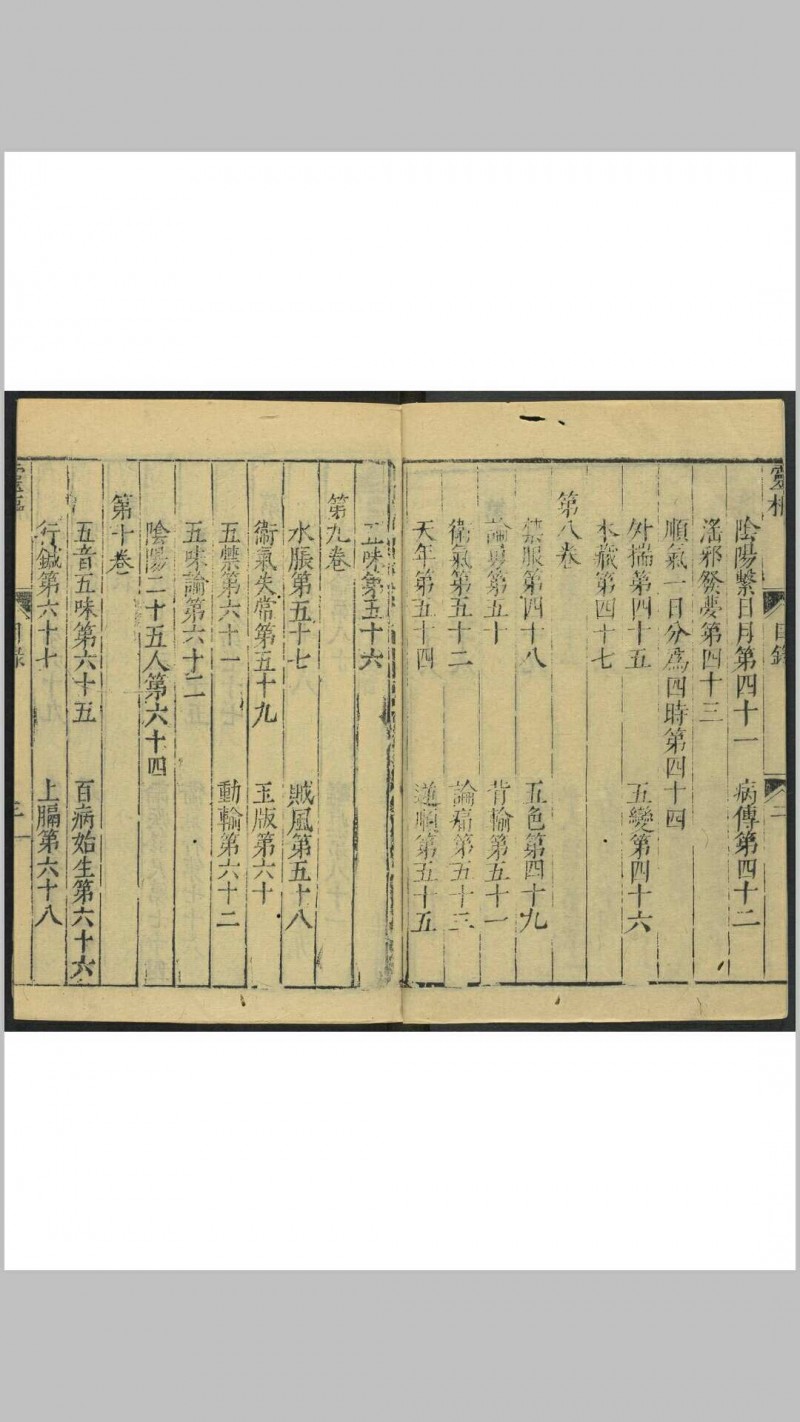 靈樞
目錄
二
陰陽繫日月第四十一 病傳第四十二
滛邪發夢第四十三
順氣一日分爲四時第四十四
外揣第四十五 五變第四十六
本藏第四十七
第八卷
禁服第四十八 五色第四十九
論勇第五十 背腧第五十一
衛氣第五十二 論痛第五十三
天年第五十四 逆順第五十五
五味第五十六
第九卷
水脹第五十七 賊風第五十八
衞氣失常第五十九 玉版第六十
五禁第六十一 動輸第六十二
五味論第六十二
陰陽二十五人第六十四
第十卷
五音五味第六十五 百病始生第六十六
行鍼第六十七 上膈第六十八
靈樞
目錄
三